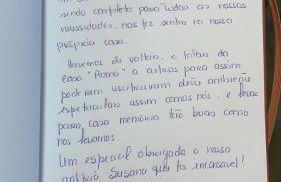 sendo completo para todas as nossas
necessidades, nos fez sentir na nossa
própria casa.
Havemos de voltar, e
casa "Roma" a outros para assim
poderem usufruirem deste ambiente
espetacular assim como nós, e levar
para casa memórias tão boas como
nós levamos.
Um especial obrigada à nossa
anfitriã Susana que foi incansável!